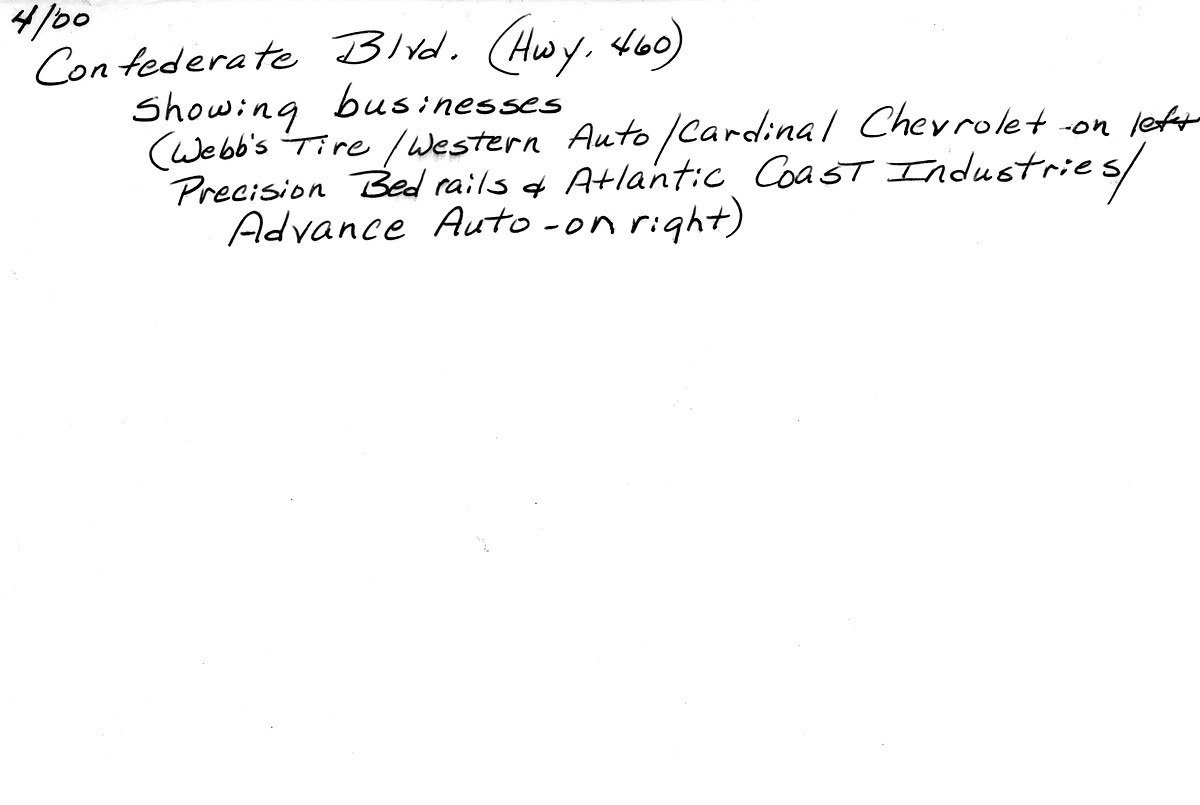 4/00
Confederate Blvd. (Hwy. 460)
Showing businesses
(Webb's Tire / Western Auto / Cardinal Chevrolet -on left
Precision Bedrails & Atlantic Coast Industries /
Advance Auto - on right)